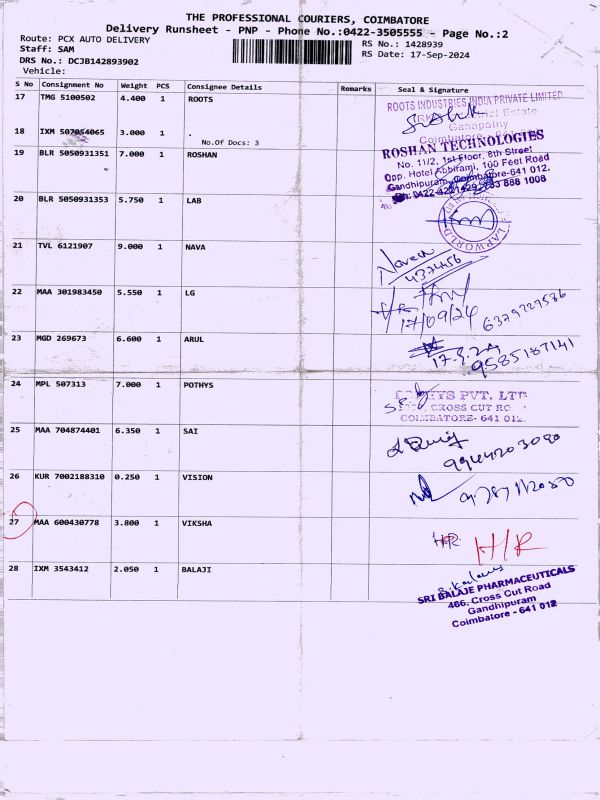 THE PROFESSIONAL COURIERS, COIMBATORE
Delivery Runsheet - PNP - Phone No.:0422-3505555 - Page No.:2
Route: PCX AUTO DELIVERY
RS No.: 1428939
Staff: SAM
RS Date: 17-Sep-2024
DRS No.: DCJB142893902
Vehicle:
S No Consignment No Weight PCS Consignee Details Remarks Seal & Signature
17 TMG 5100502 4.400 1 ROOTS
ROOTS INDUSTRIES INDIA PRIVATE LIMITED
Estate
Ganapathy
Coimbatore
18 IXM 507054065 3.000 1 .
No.Of Docs: 3
19 BLR 5050931351 7.000 1 ROSHAN
ROSHAN TECHNOLOGIES
No. 11/2, 1st Floor, 8th Street
Opp. Hotel Abbirami, 100 Feet Road
Gandhipuram, Coimbatore-641 012.
20 BLR 5050931353 5.750 1 LAB
LAPWORLD
21 TVL 6121907 9.000 1 NAVA
Naveen
437456
22 MAA 301983450 5.550 1 LG
17/09/24 6379227586
23 MGD 269673 6.600 1 ARUL
17.9.24 9585187141
24 MPL 507313 7.000 1 POTHYS
PVT. LTD
CROSS CUT RO
COIMBATORE- 641 012.
25 MAA 704874401 6.350 1 SAI
9944203090
26 KUR 7002188310 0.250 1 VISION
9787112080
27 MAA 600430778 3.800 1 VIKSHA
H/R H/R
28 IXM 3543412 2.050 1 BALAJI
SRI BALAJE PHARMACEUTICALS
466, Cross Cut Road
Gandhipuram
Coimbatore - 641 012